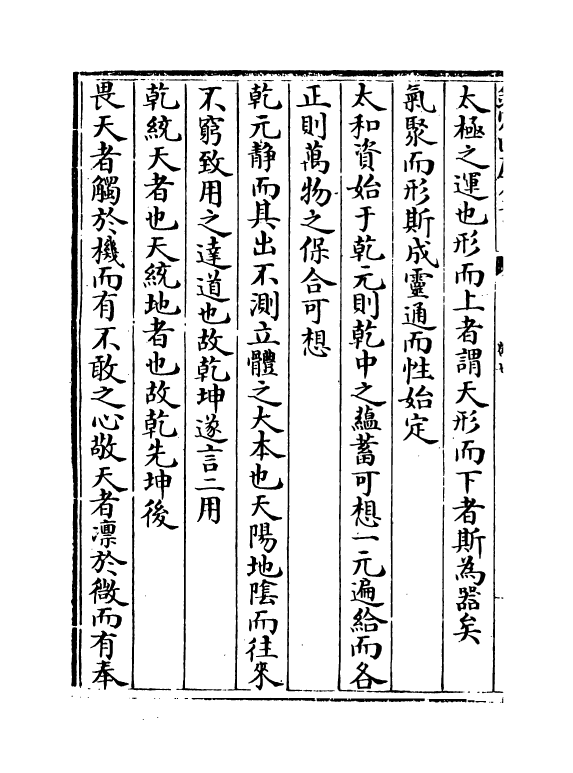 太極之運也形而上者謂天形而下者斯為器矣
氣聚而形斯成靈通而性始定
太和資始于乾元則乾中之蘊蓄可想一元遍給而各
正則萬物之保合可想
乾元靜而具出不測立體之大本也天陽地隂而往來
不窮致用之達道也故乾坤遂言二用
乾統天者也天統地者也故乾先坤後
畏天者觸於機而有不敢之心敬天者凛於微而有奉